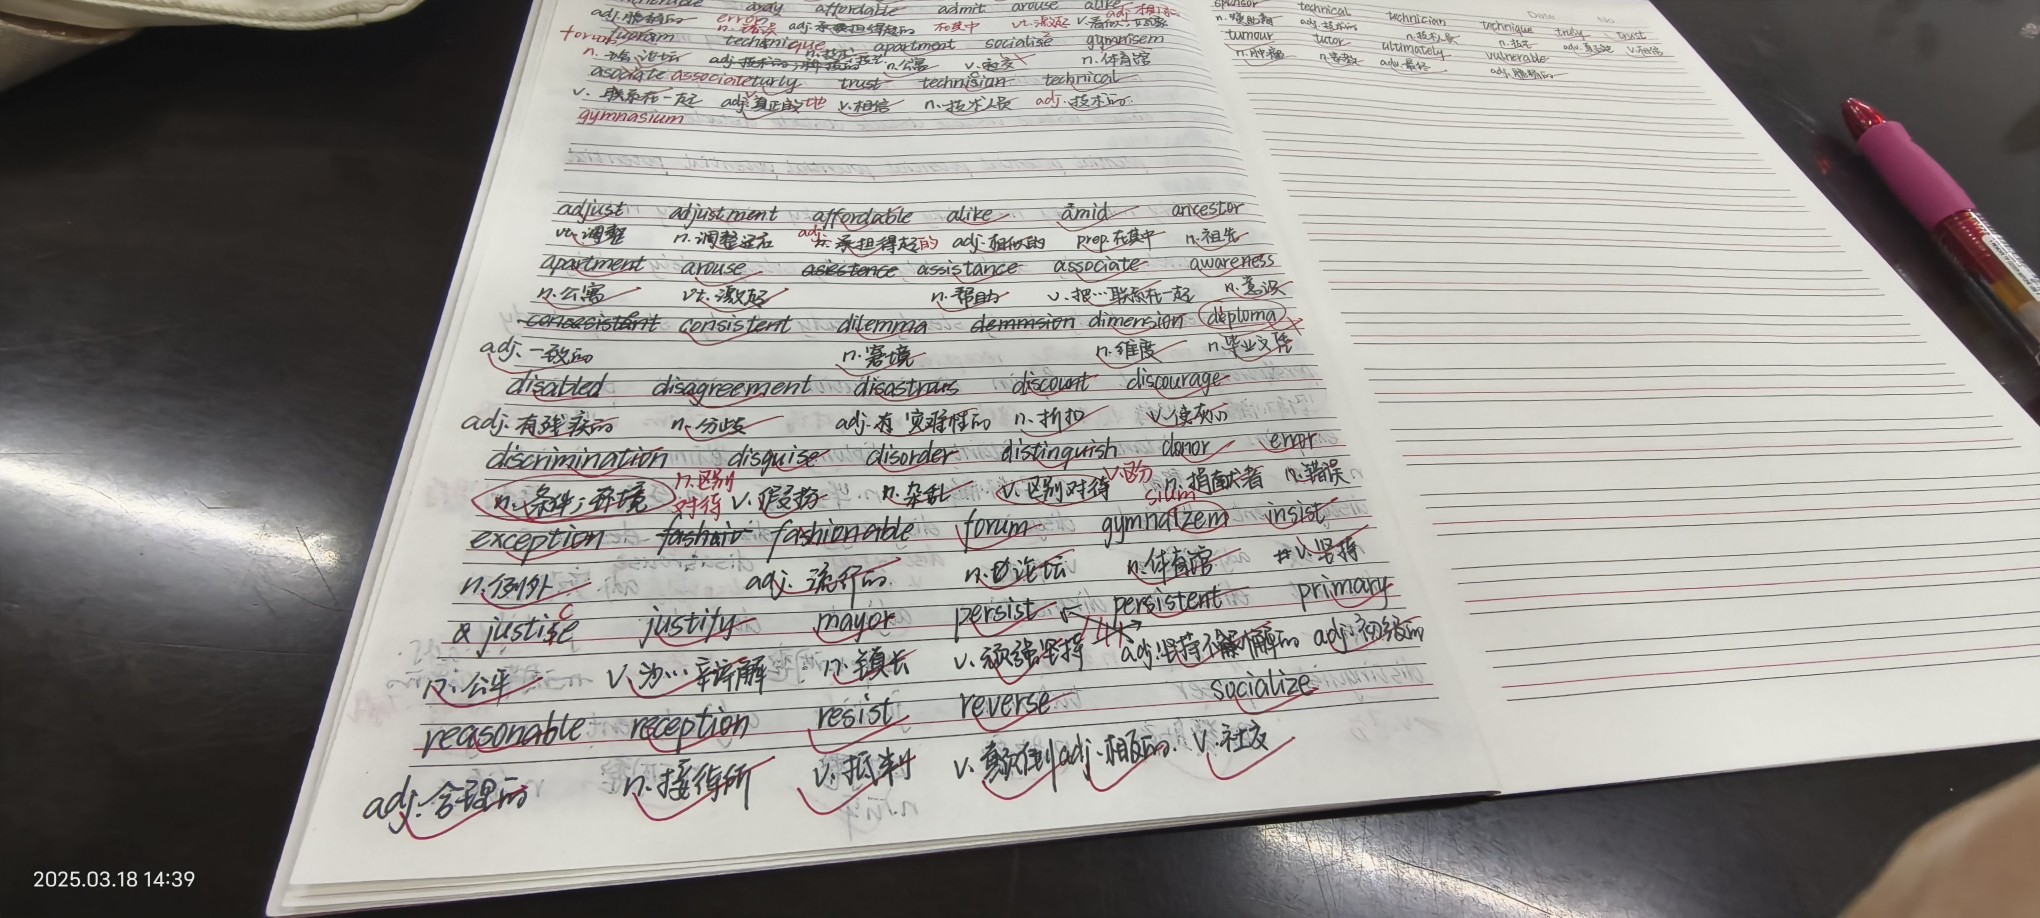 affordable admit arouse alike
error
n.错误 adj.承担得起的 在其中 vt.激起
forum technique apartment socialise gymnisem
n.公寓 v.社交 n.体育馆
asociate associate turly trust technisian technical
v.联系在一起 adj.真正的地 v.相信 n.技术人员 adj.技术的
gymnasium
adjust adjustment affordable alike amid ancestor
vt.调整 n.调整适应 adj. 承担得起的 adj.相似的 prep.在其中 n.祖先
apartment arouse asistence assistance associate awareness
n.公寓 vt.激起 n.帮助 v.把…联系在一起 n.意识
consistent dilemma demmsion dimension deploma
adj.一致的 n.窘境 n.维度 n.毕业文凭
disabled disagreement disastraus discount discourage
adj.有残疾的 n.分歧 adj.有灾难性的 n.折扣 v.使灰心
discrimination disguise disorder distinguish donor error
n.条件;环境 n.区别对待 v.假扮 n.杂乱 v.区别对待 v.区分 n.捐献者 n.错误
sium
exception fashoin fashionable forum gymnaizem insist
n.例外 adj.流行的 n.论坛 n.体育馆 v.坚持
c
justise justify mayor persist persistent primary
n.公平 v.为…辩解 n.镇长 v.顽强坚持 adj.坚持不懈的 adj.初级的
reasonable reception resist reverse socialize
adj.合理的 n.接待所 v.抵制 v.颠倒 adj.相反的 v.社交
sponsor technical technician technique truly trust
n.赞助商 adj.技术的 n.技术人员 n.技术 adv.真正地 v.相信
tumour tutor ultimately vulnerable
n.肿瘤 n.家教 adv.最终 adj.脆弱的
Date No
2025.03.18 14:39